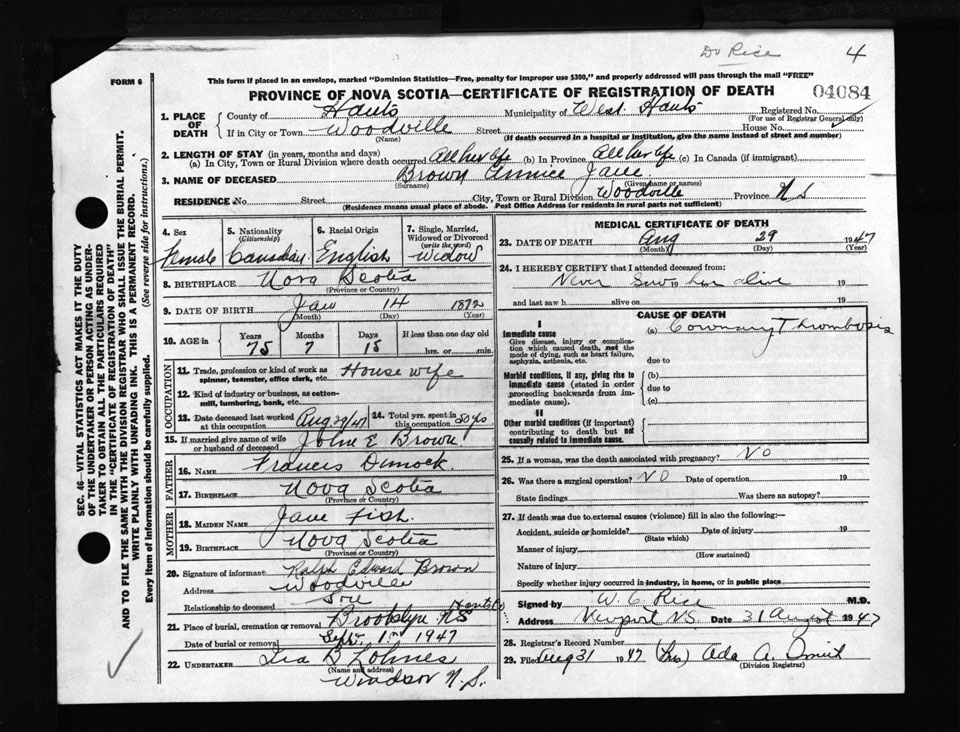 Dr Rice 4
FORM 6
This form if placed in an envelope, marked "Dominion Statistics—Free, penalty for improper use $300," and properly addressed will pass through the mail "FREE"
PROVINCE OF NOVA SCOTIA—CERTIFICATE OF REGISTRATION OF DEATH 04084
1. PLACE OF DEATH County of Hants Municipality of West Hants Registered No.
(For use of Registrar General only)
If in City or Town Woodville Street House No.
(Name) (If death occurred in a hospital or institution, give the name instead of street and number)
2. LENGTH OF STAY (in years, months and days)
(a) In City, Town or Rural Division where death occurred All her life (b) In Province All her life (c) In Canada (if immigrant)
3. NAME OF DECEASED Brown Eunice Jane
(Surname) (Given name or names)
RESIDENCE No. Street City, Town or Rural Division Woodville Province N S
(Residence means usual place of abode. Post Office Address for residents in rural parts not sufficient)
4. Sex Female
5. Nationality (Citizenship) Canadian
6. Racial Origin English
7. Single, Married, Widowed or Divorced (write the word) Widow
8. BIRTHPLACE Nova Scotia
(Province or Country)
9. DATE OF BIRTH Jan 14 1872
(Month) (Day) (Year)
10. AGE in Years 75 Months 7 Days 15 If less than one day old hrs. or min.
OCCUPATION
11. Trade, profession or kind of work as spinner, teamster, office clerk, etc. House wife
12. Kind of industry or business, as cotton-mill, lumbering, bank, etc.
13. Date deceased last worked at this occupation Aug 29/47
14. Total yrs. spent in this occupation 50 yrs
15. If married give name of wife or husband of deceased John E Brown
FATHER
16. NAME Francis Dimock.
17. BIRTHPLACE Nova Scotia
(Province or Country)
MOTHER
18. MAIDEN NAME Jane Fish.
19. BIRTHPLACE Nova Scotia
(Province or Country)
20. Signature of informant Ralph Edward Brown
Address Woodville
Relationship to deceased Son
21. Place of burial, cremation or removal Brooklyn Hants Co NS
Date of burial or removal Sept. 1st 1947
22. UNDERTAKER Ira B Lohnes
(Name and address)
Windsor N.S.
MEDICAL CERTIFICATE OF DEATH
23. DATE OF DEATH Aug 29 1947
(Month) (Day) (Year)
24. I HEREBY CERTIFY that I attended deceased from:
Never Saw 19 her alive 19
and last saw h alive on 19
CAUSE OF DEATH
I
Immediate cause
Give disease, injury or complication which caused death, not the mode of dying, such as heart failure, asphyxia, asthenia, etc.
(a) Coronary Thrombosis
due to
Morbid conditions, if any, giving rise to immediate cause (stated in order proceeding backwards from immediate cause).
(b)
due to
(c)
II
Other morbid conditions (if important) contributing to death but not causally related to immediate cause.
25. If a woman, was the death associated with pregnancy? NO
26. Was there a surgical operation? NO Date of operation 19
State findings Was there an autopsy?
27. If death was due to external causes (violence) fill in also the following:—
Accident, suicide or homicide? Date of injury 19
(State which)
Manner of injury
(How sustained)
Nature of injury
Specify whether injury occurred in industry, in home, or in public place
Signed by W. C. Rice M.D.
Address Newport N.S. Date 31 August 1947
28. Registrar's Record Number
29. Filed Aug 31 1947 (Mrs) Ada A.
(Division Registrar)
SEC. 46—VITAL STATISTICS ACT MAKES IT THE DUTY
OF THE UNDERTAKER OR PERSON ACTING AS UNDER-
TAKER TO OBTAIN ALL THE PARTICULARS REQUIRED
IN THE "CERTIFICATE OF REGISTRATION OF DEATH"
AND TO FILE THE SAME WITH THE DIVISION REGISTRAR WHO SHALL ISSUE THE BURIAL PERMIT.
WRITE PLAINLY WITH UNFADING INK. THIS IS A PERMANENT RECORD.
Every item of information should be carefully supplied. (See reverse side for instructions.)